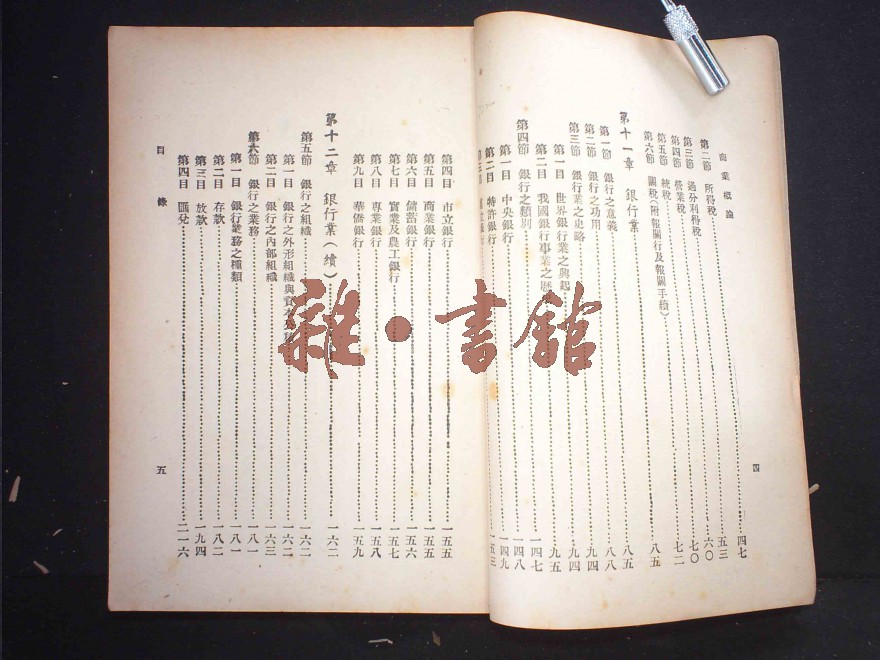 商業概論
四
第二節 所得稅……四七
第三節 過分利得稅……五三
第四節 營業稅……六〇
第五節 統稅……七〇
第六節 關稅(附報關行及報關手續)……七二
第十一章 銀行業……八五
第一節 銀行之意義……八五
第二節 銀行之功用……八八
第三節 銀行業之史略……九四
第一目 世界銀行業之興起……九四
第二目 我國銀行事業之歷……九五
第四節 銀行之類別……一四七
第一目 中央銀行……一四八
第二目 特許銀行……一四九
第三目 銀行……一五三
第四目 市立銀行……一五五
第五目 商業銀行……一五五
第六目 儲蓄銀行……一五六
第七目 實業及農工銀行……一五七
第八目 專業銀行……一五八
第九目 華僑銀行……一五九
第十二章 銀行業(續)……一六二
第五節 銀行之組織……一六二
第一目 銀行之外形組織與資本……一六二
第二目 銀行之內部組織……一六三
第六節 銀行之業務……一八一
第一目 銀行業務之種類……一八一
第二目 存款……一八二
第三目 放款……一九四
第四目 匯兌……二一六
目錄
五
雜·書館